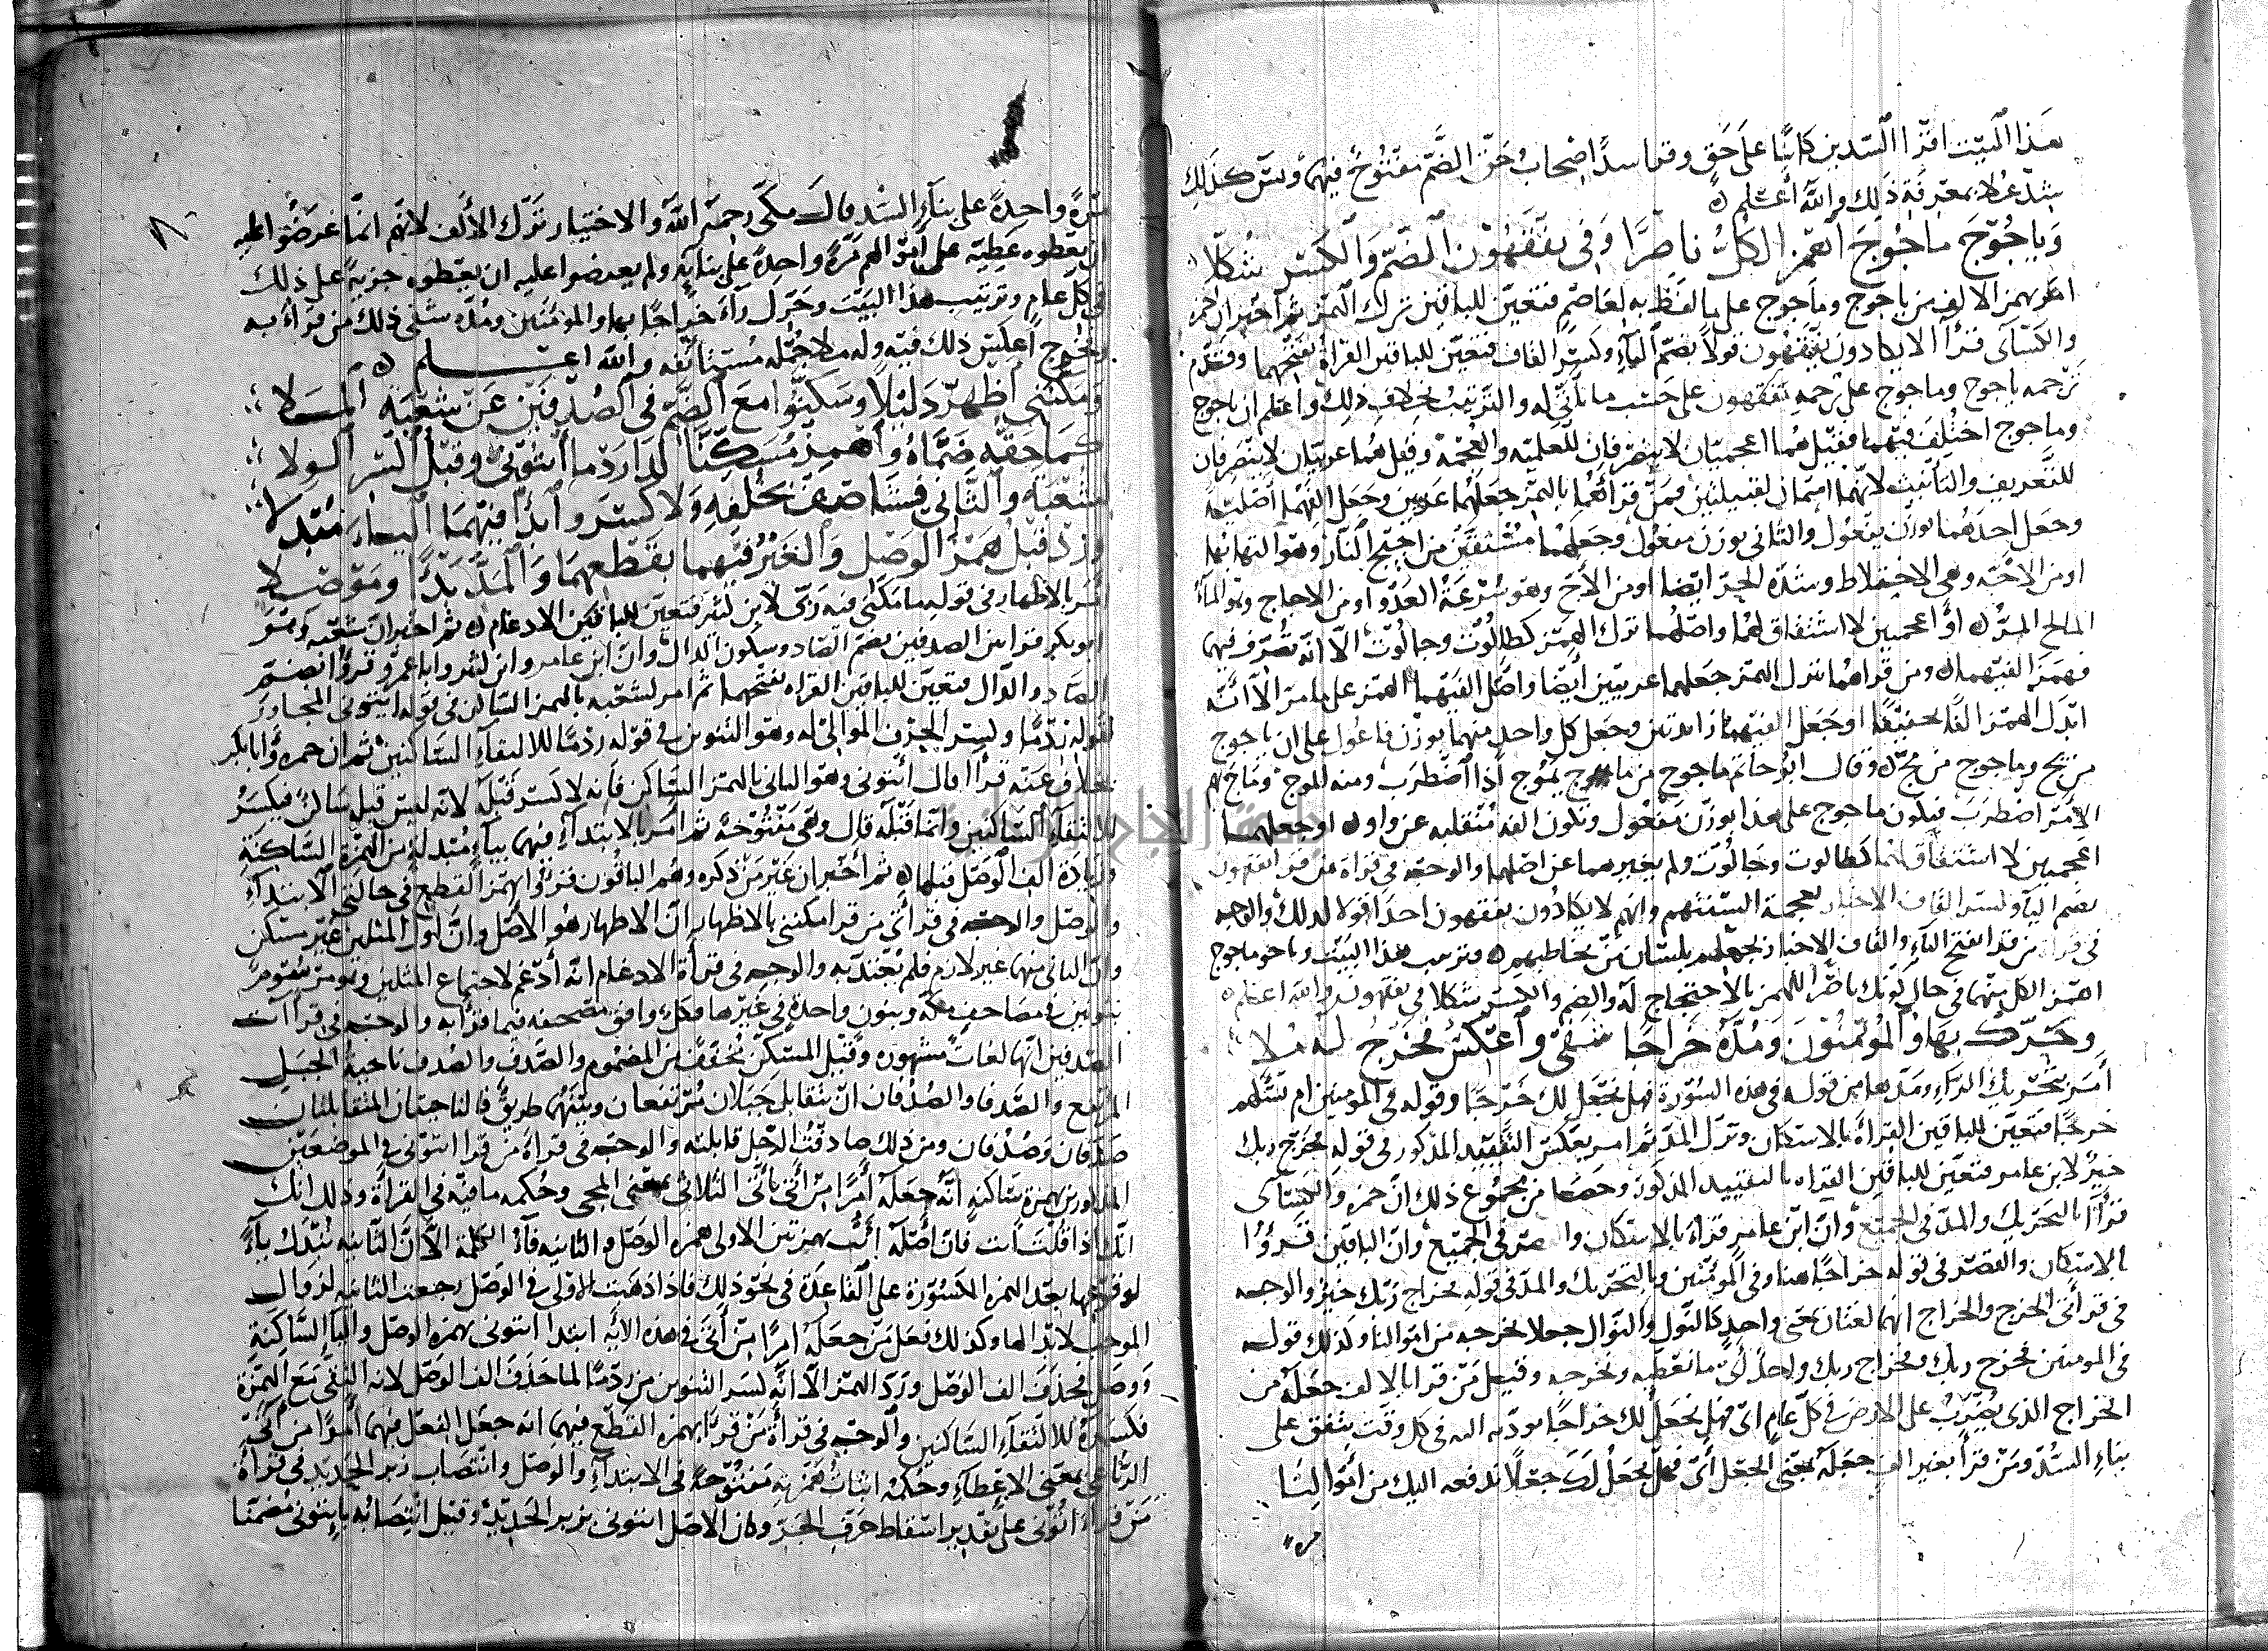 هذا البيت اقرا السدين كائنا على حق وقرا سدا اصحاب حق الضم مفتوح فيهما ويس كذلك
شد علا بمعرفة ذلك والله اعلم
وياجوج ماجوج اهمز الكل ناصرا وفي يفقهون الضم والكسر شكلا
امر بهمز الالف من ياجوج وماجوج على ما لفظ به لعاصم فتعين للباقين ترك الهمز ثم اخبر ان حمزة
والكسائي قرآ لا يكادون يفقهون قولا بضم الياء وكسر القاف فتعين للباقين القراة بفتحهما وقدم
ترجمه ياجوج وماجوج على ترجمه يفقهون على حسب ما تأتى له والترتيب بخلاف ذلك واعلم ان ياجوج
وماجوج اختلف فيهما فقيل هما اعجميان لا ينصرفان للعلمية والعجمة وقيل هما عربيان لا ينصرفان
للتعريف والتأنيث لانهما اسمان لقبيلتين فمن قرأهما بالهمز جعلهما عربيين وجعل الفهما اصلية
وجعل احدهما بوزن يفعول والثاني بوزن مفعول وجعلهما مشتقين من اجيج النار وهو التهابها
او من الاجة وهي الاختلاط وشدة الحر ايضا او من الاج وهو سرعة العدو او من الاجاج وهو الماء
المالح المر او اعجميين لا اشتقاق لهما واصلهما ترك الهمز كطالوت وجالوت الا انه تصرف فيهما
فهمز الفيهما ومن قراهما بترك الهمز جعلهما عربيين أيضا واصل الفيهما الهمز على ما مر الا انه
ابدل الهمز الفا تخفيفا او جعل الفيهما زايدتين وجعل كل واحد منهما بوزن فاعول على ان ياجوج
من يج وماجوج من مج وقال ابو حاتم ماجوج من ماج يموج اذا اضطرب ومنه الموج وماج بهم
الامر اضطرب فيكون ماجوج على هذا بوزن مفعول وتكون الفه منقلبه عن واو او جعلهما
اعجميين لا اشتقاق لهما كطالوت وجالوت ولم يغيرهما عن اصلهما والوجه في قراة من قرا يفقهون
بضم اليا وكسر القاف الاخبار بعجمة السنتهم وانهم لا يكادون يفقهون احدا قولا لذلك والوجه
في قراة من قرا بفتح الياء والقاف الاخبار بجهلهم بلسان من يخاطبهم وترتيب هذا البيت وياجوج ماجوج
اهمز الكل منهما في حال كونك ناصرا للهمز بالاحتجاج له والضم والكسر شكلا في يفقهون والله اعلم
وحرك بها والمؤمنون ومده خراجا شفى واعكس فخرج له ملا
أمر بتحريك الراء ومدها من قوله في هذه السورة فهل نجعل لك خرجا وقوله في المومنين ام تسئلهم
خرجا فتعين للباقين القراة بالاسكان وترك المد ثم امر بعكس التقييد المذكور في قوله فخرج ربك
خير لابن عامر فتعين للباقين القراه بالتقييد المذكور وحصل من مجموع ذلك ان حمزه والكسائى
قرأا بالتحريك والمد في الجميع وان ابن عامر قراة بالاسكان والقصر في الجميع وان الباقين قرؤا
بالاسكان والقصر في قوله خراجا هنا وفي المؤمنين وبالتحريك والمد في قوله فخراج ربك خير والوجه
في قرأتى الخرج والخراج انهما لغتان بمعنى واحد كالنول والنوال جعلا نخرجه من اموالنا وكذلك قوله
في المومنين فخرج ربك وفخراج ربك واحد أي ما نعطيه ونخرجه وقيل من قرا بالالف جعله من
الخراج الذى يضرب على الارض في كل عام اى فهل نجعل لك خراجا نوديه اليه في كل وقت نتفق على
بناء السد ومن قرأ بغير الف جعله بمعنى الجعل أي فهل نجعل لك جعلا ندفعه اليك من أموالنا
مره
مرة واحدة على بناء السد قال مكى رحمه الله والاختيار ترك الألف لانهم انما عرضوا عليه
ان يعطوه عطية على مرة واحدة على بنايه ولم يعرضوا عليه ان يعطوه جزية على ذلك
في كل عام وترتيب هذا البيت وحرك راء خراجا بها والمؤمنين ومده شفى ذلك من قرأ به
وفخرج اعكس ذلك فيه وله ملا جملة مستأنفه والله اعلم
ومكننى اظهر دليلا وسكنوا مع الضم في الصدفين عن شعبة الملا
كما حقه ضماه واهمز مسكنا لدا ردما ائتوني وقبل اكسر الولا
لشعبة والثاني فشا صف بخلفه ولا كسر وابدأ فيهما الياء مبدلا
وزد قبل همز الوصل والغير فيهما بقطعهما والمد بدءا وموصلا
أمر بالاظهار في قوله ما مكنى فيه ربى لابن كثير فتعين للباقين الادغام ثم اخبر ان شعبه وهو
ابو بكر قرا بين الصدفين بضم الصاد وسكون الدال وان ابن عامر وابن كثير وابا عمرو قرؤا بضم
الصاد والدال فتعين للباقين القراه بفتحهما ثم امر لشعبه بالهمز الساكن في قوله ايتوني المجاور
لقوله ردما وكسر الحرف الموالى له وهو التنوين في قوله ردما لالتقاء الساكنين ثم ان حمزه وأبا بكر
بخلاف عنه قرأا قال أتتونى وهو الثاني بالهمز الساكن فانه لا كسر قبله لانه ليس قبله ساكن فيكسر
لالتقاء الساكنين وانما قبله قال وهى مفتوحة ثم امر بالابتداء فيهما بياء مبدلة من الهمزة الساكنة
وزيادة الف الوصل قبلها ثم أخبر ان غير من ذكره وهم الباقون قرؤا بهمز القطع في حالتي الابتداء
والوصل والوجه في قرأتى من قرا مكننى بالاظهار ان الاظهار هو الأصل وان اول المثلين غير مسكن
وان الثاني منهما غير لازم فلم يعتد به والوجه في قرأة الادغام انه أدغم لاجتماع المثلين وهو مرسوم
بنونين في مصاحف مكة وبنون واحدة في غيرها وكل وافق مصحفه فيما قرأ به والوجه في قرآآت
الصدفين انها لغات مشهوره وقيل المسكن مخفف من المضموم والصدف والصدف ناحية الجبل
المرتفع والصدفان والصدفان ان يتقابل جبلان مرتفعان وبينهما طريق فالناحيتان المتقابلتان
صدفان وصدفان ومن ذلك صادفت الرجل قابلته والوجه في قراة من قرا ائتونى في الموضعين
المذكورين بهمزة ساكنة انه جعله أمرا من أتى يأتى الثلاثى بمعنى المجى وحكمه ما فيه في القراة وذلك انك
اذا قلت ائت فان أصله أئت بهمزتين الاولى همزه الوصل والثانيه فاء الكلمة الا ان الثانيه تبدل ياء
لوقوعها بعد الهمزه المكسورة على القاعدة في نحو ذلك فاذا ذهبت الاولى في الوصل رجعت الثانيه لزوال
الموجب لابدالها وكذلك فعل من جعله امرا من أتى في هذه الآيه ابتدا ايتونى بهمزه الوصل والياء الساكنة
ووصل بحذف الف الوصل ورد الهمز الا انه كسر التنوين من ردما لما حذف الف الوصل لانه التقى مع الهمزة
فكسره لالتقاء الساكنين والوجه في قرأة من قرا بهمزه القطع فيهما انه جعل الفعل فيهما أمرا من آتى
الرباعى بمعنى الاعطاء وحكمه اثبات همزته مفتوحة في الابتداء والوصل وانتصاب زبر الحديد في قراة
من قرأ ائتونى على تقدير اسقاط حرف الجر وكان الاصل ائتونى بزبر الحديد وقيل انتصابه بايتونى مضمنا